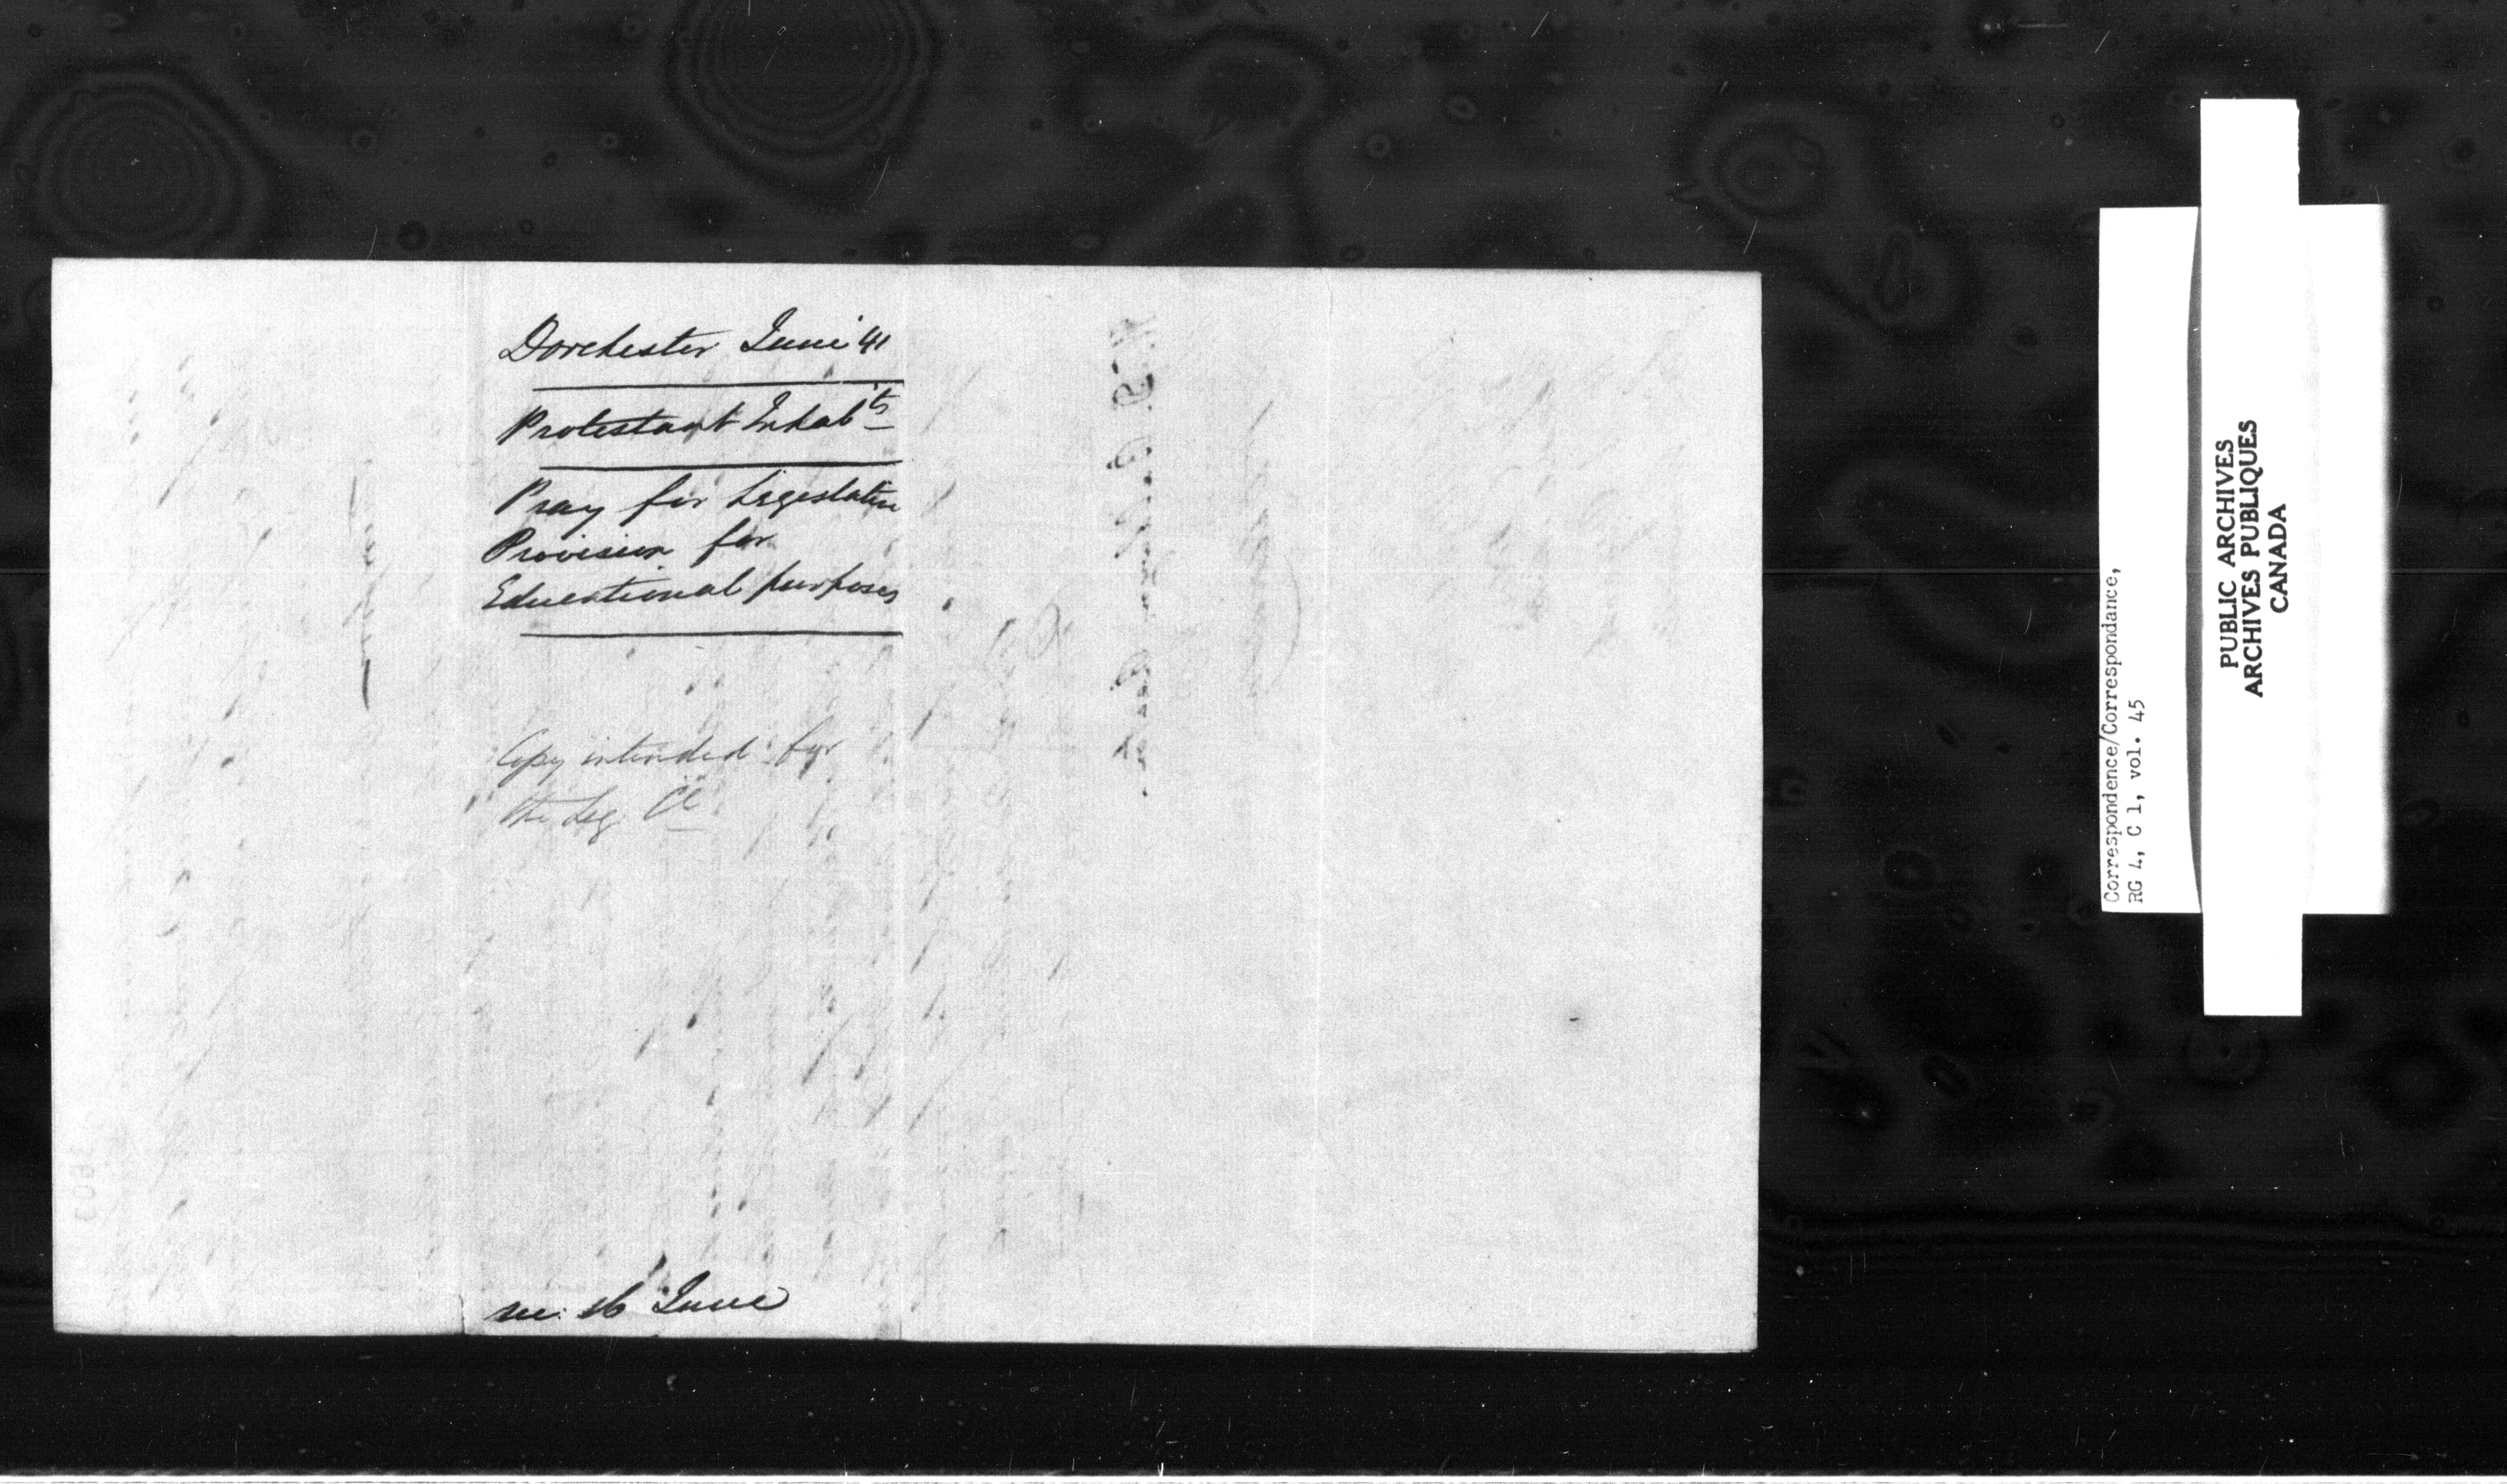 Dorchester June 41
Protestant Inhabts
Pray for Legislative
Provision for
Educational purposes
Copy intended for
the Leg. Cl
rec. 16 June
Correspondence/Correspondance,
RG 4, C 1, vol. 45
PUBLIC ARCHIVES
ARCHIVES PUBLIQUES
CANADA